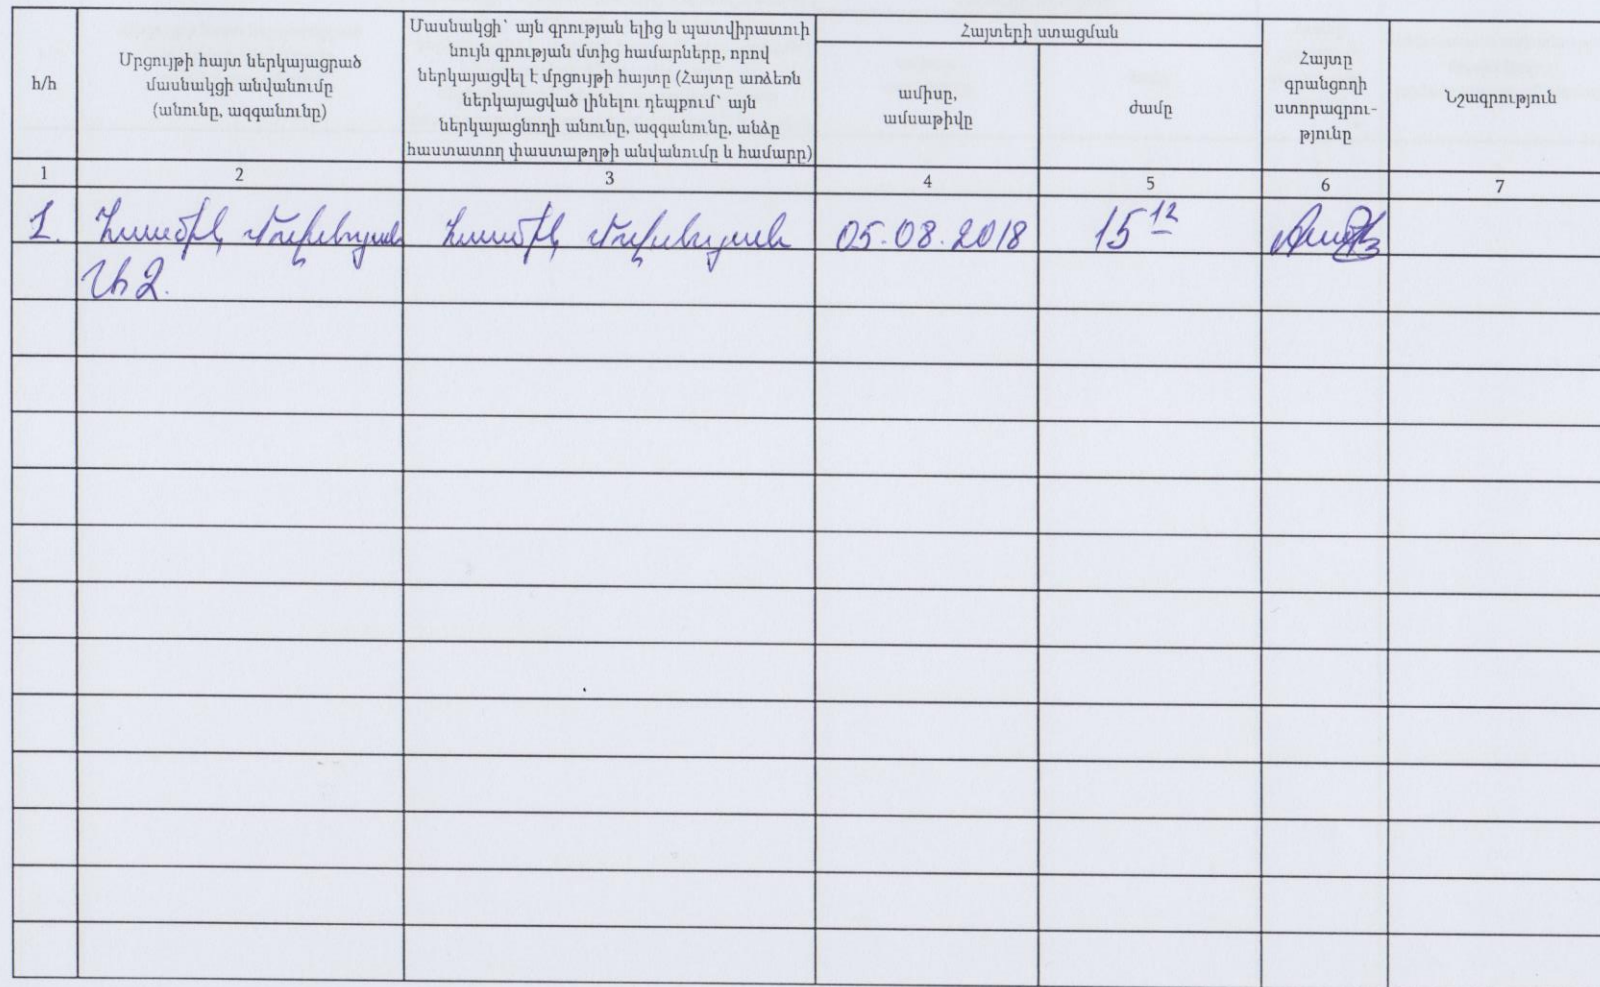 հ/հ
Մրցույթի հայտ ներկայացրած
մասնակցի անվանումը
(անունը, ազգանունը)
Մասնակցի՝ այն գրության ելից և պատվիրատուի
նույն գրության մտից համարները, որով
ներկայացվել է մրցույթի հայտը (Հայտը առձեռն
ներկայացված լինելու դեպքում՝ այն
ներկայացնողի անունը, ազգանունը, անձը
հաստատող փաստաթղթի անվանումը և համարը)
Հայտերի ստացման
ամիսը,
ամսաթիվը
ժամը
Հայտը
գրանցողի
ստորագրու-
թյունը
Նշագրություն
1 2 3 4 5 6 7
1. Հասմիկ Հասմիկ 05.08.2018 15 12
ԱՁ.